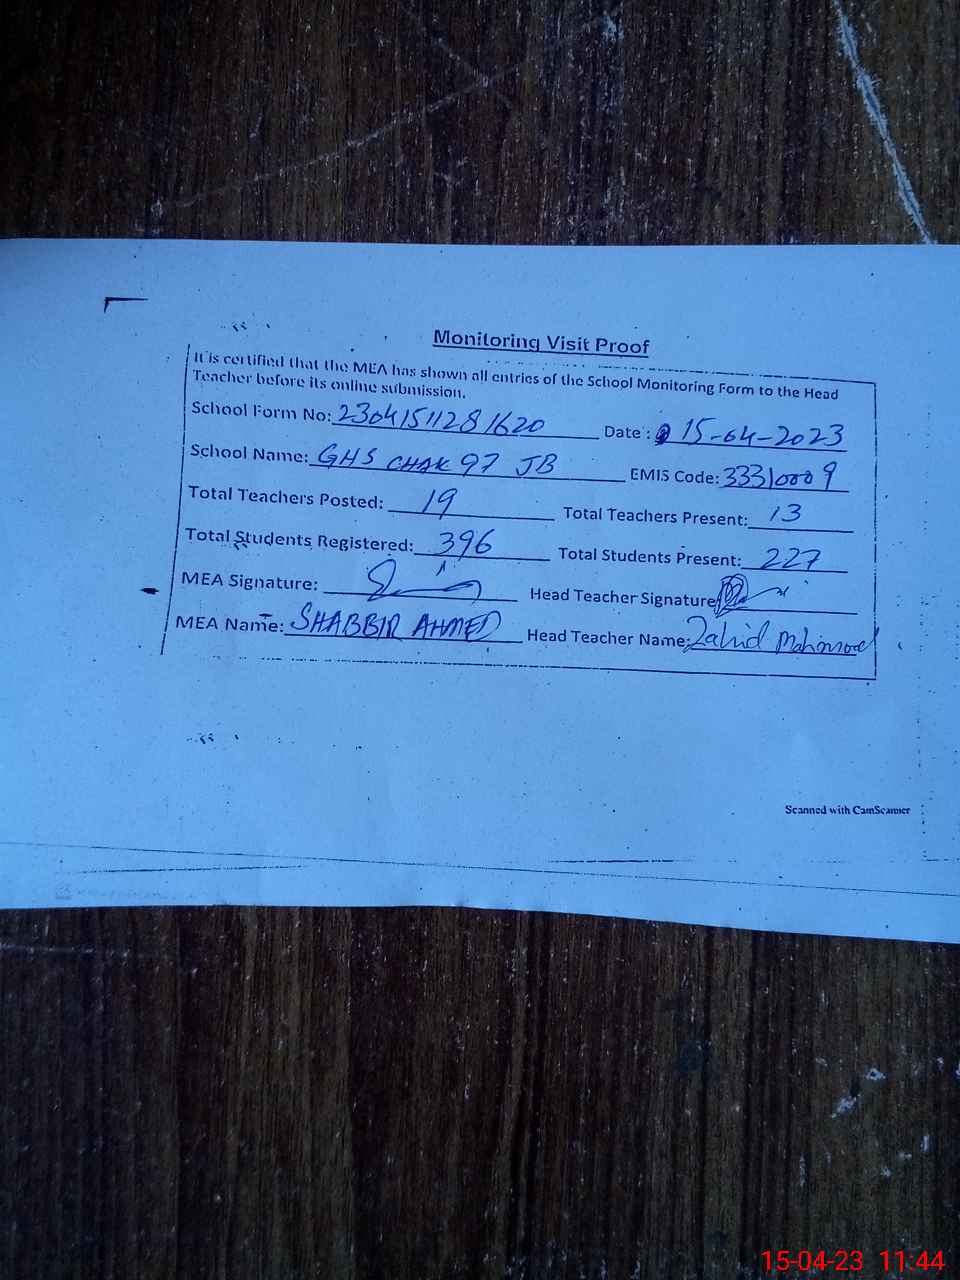 Monitoring Visit Proof
It is certified that the MEA has shown all entries of the School Monitoring Form to the Head
Teacher before its online submission.
School Form No: 23041511281620 Date : 15-04-2023
School Name: GHS CHAK 97 JB EMIS Code: 33310009
Total Teachers Posted: 19 Total Teachers Present: 13
Total Students Registered: 396 Total Students Present: 227
MEA Signature: Head Teacher Signature
MEA Name: SHABBIR AHMED Head Teacher Name: Zahid Mahmood
Scanned with CamScanner
15-04-23 11:44